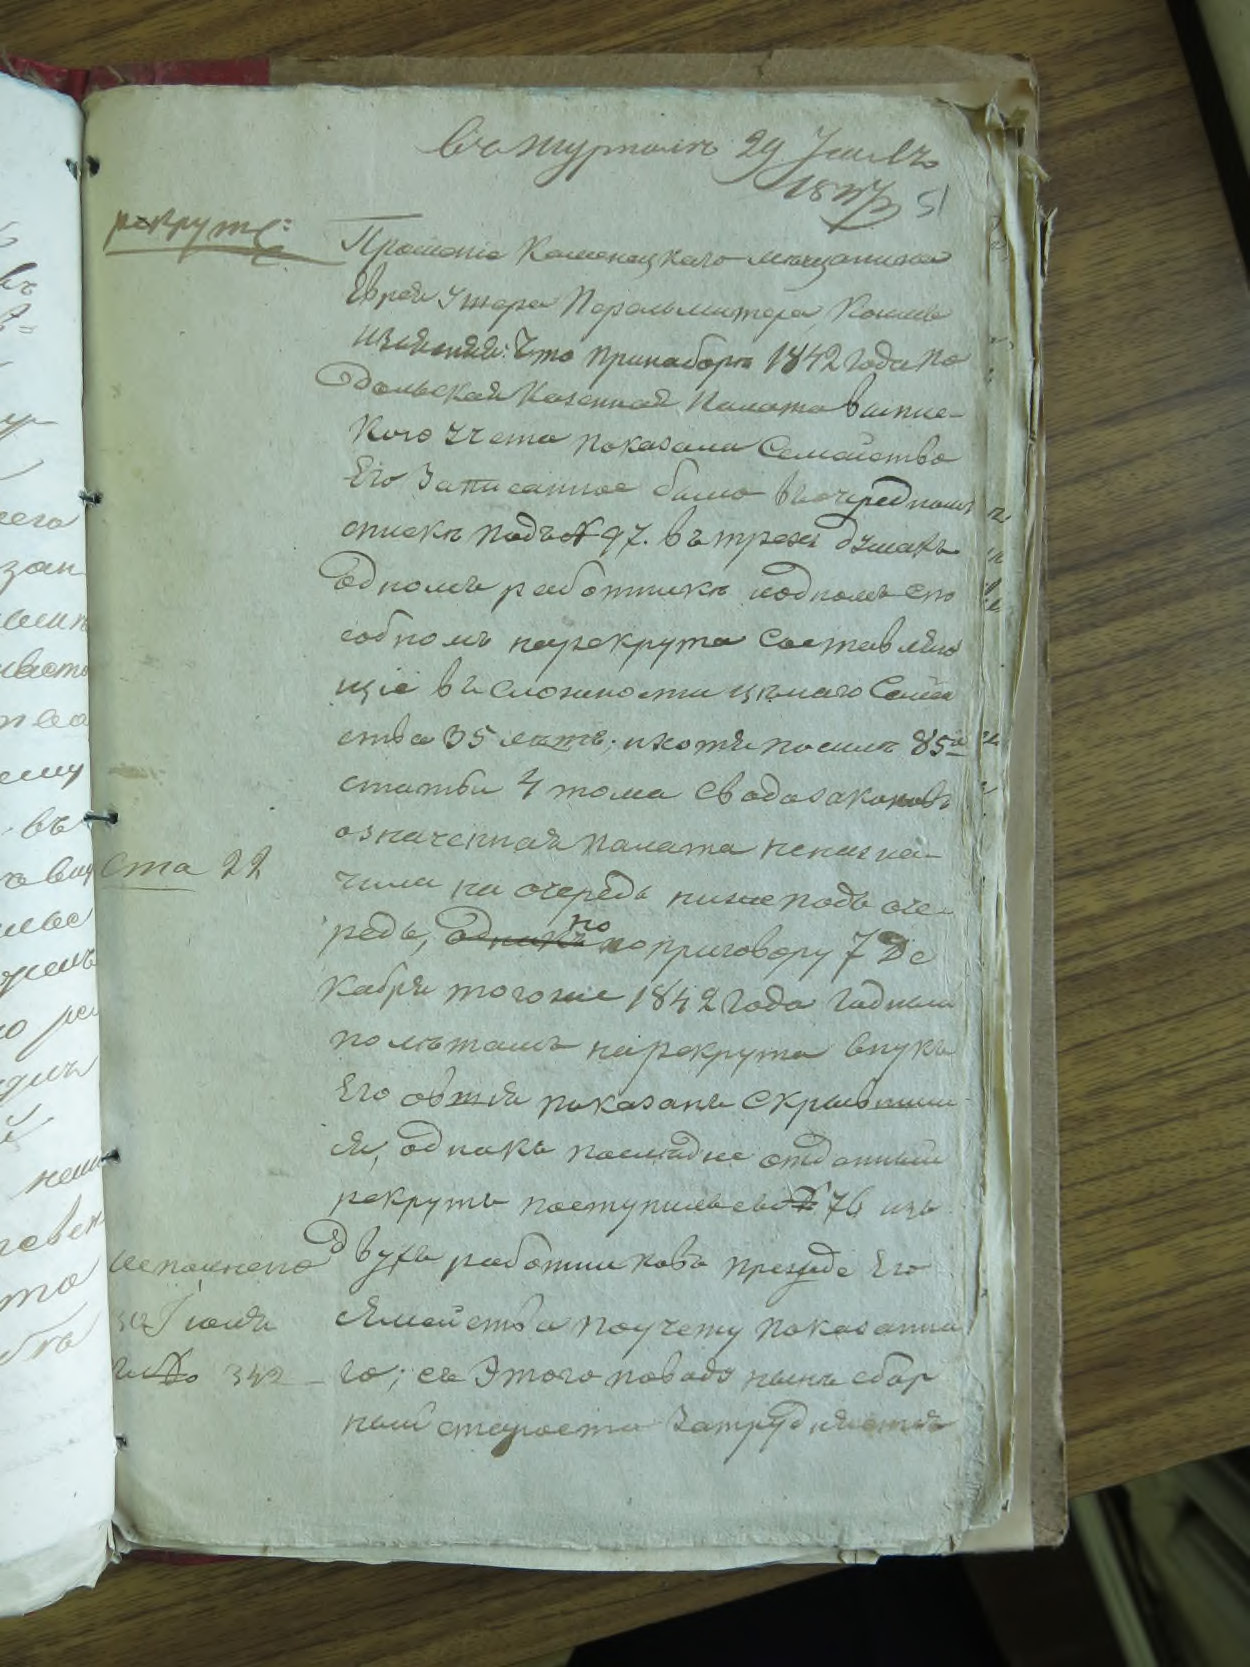 въ журналъ 29 Іюля
51
рекрут:
Прошеніе Каменецкаго мѣщанина
Еврея Ушера Перельмитера Коимъ
изъясняя: что принаборѣ 1842 года По
дольская Казенная Палата
Кого учета показала Семейство
Его Записанное было въ очередномъ
спискѣ подъ № 97. въ трехъ душахъ
одномъ работникѣ и одномъ спо
собномъ нарекрута Составляю
щіе въ сложности цѣлаго Семей
ства 35 лѣтъ; и хотя посилѣ 85й
статьи 4 тома Свода законовъ
означенная палата неназна-
чила на очередь ниже подъ оче-
редь, однакъ но по приговору 7 Де
кабря тогоже 1842 года Годнымъ
полѣтамъ нарекрута внукъ
Его показанъ Скрывшим
ся, однакъ последне отданный
рекрутъ поступилъ съ № 76 изъ
двухъ работниковъ прежде Его
сѣмейства поучету показанна
го; съ Этого поводу нынѣ сбор
ный староста Затрудняется
Ста 22
исполнено
30 Іюля
за № 342